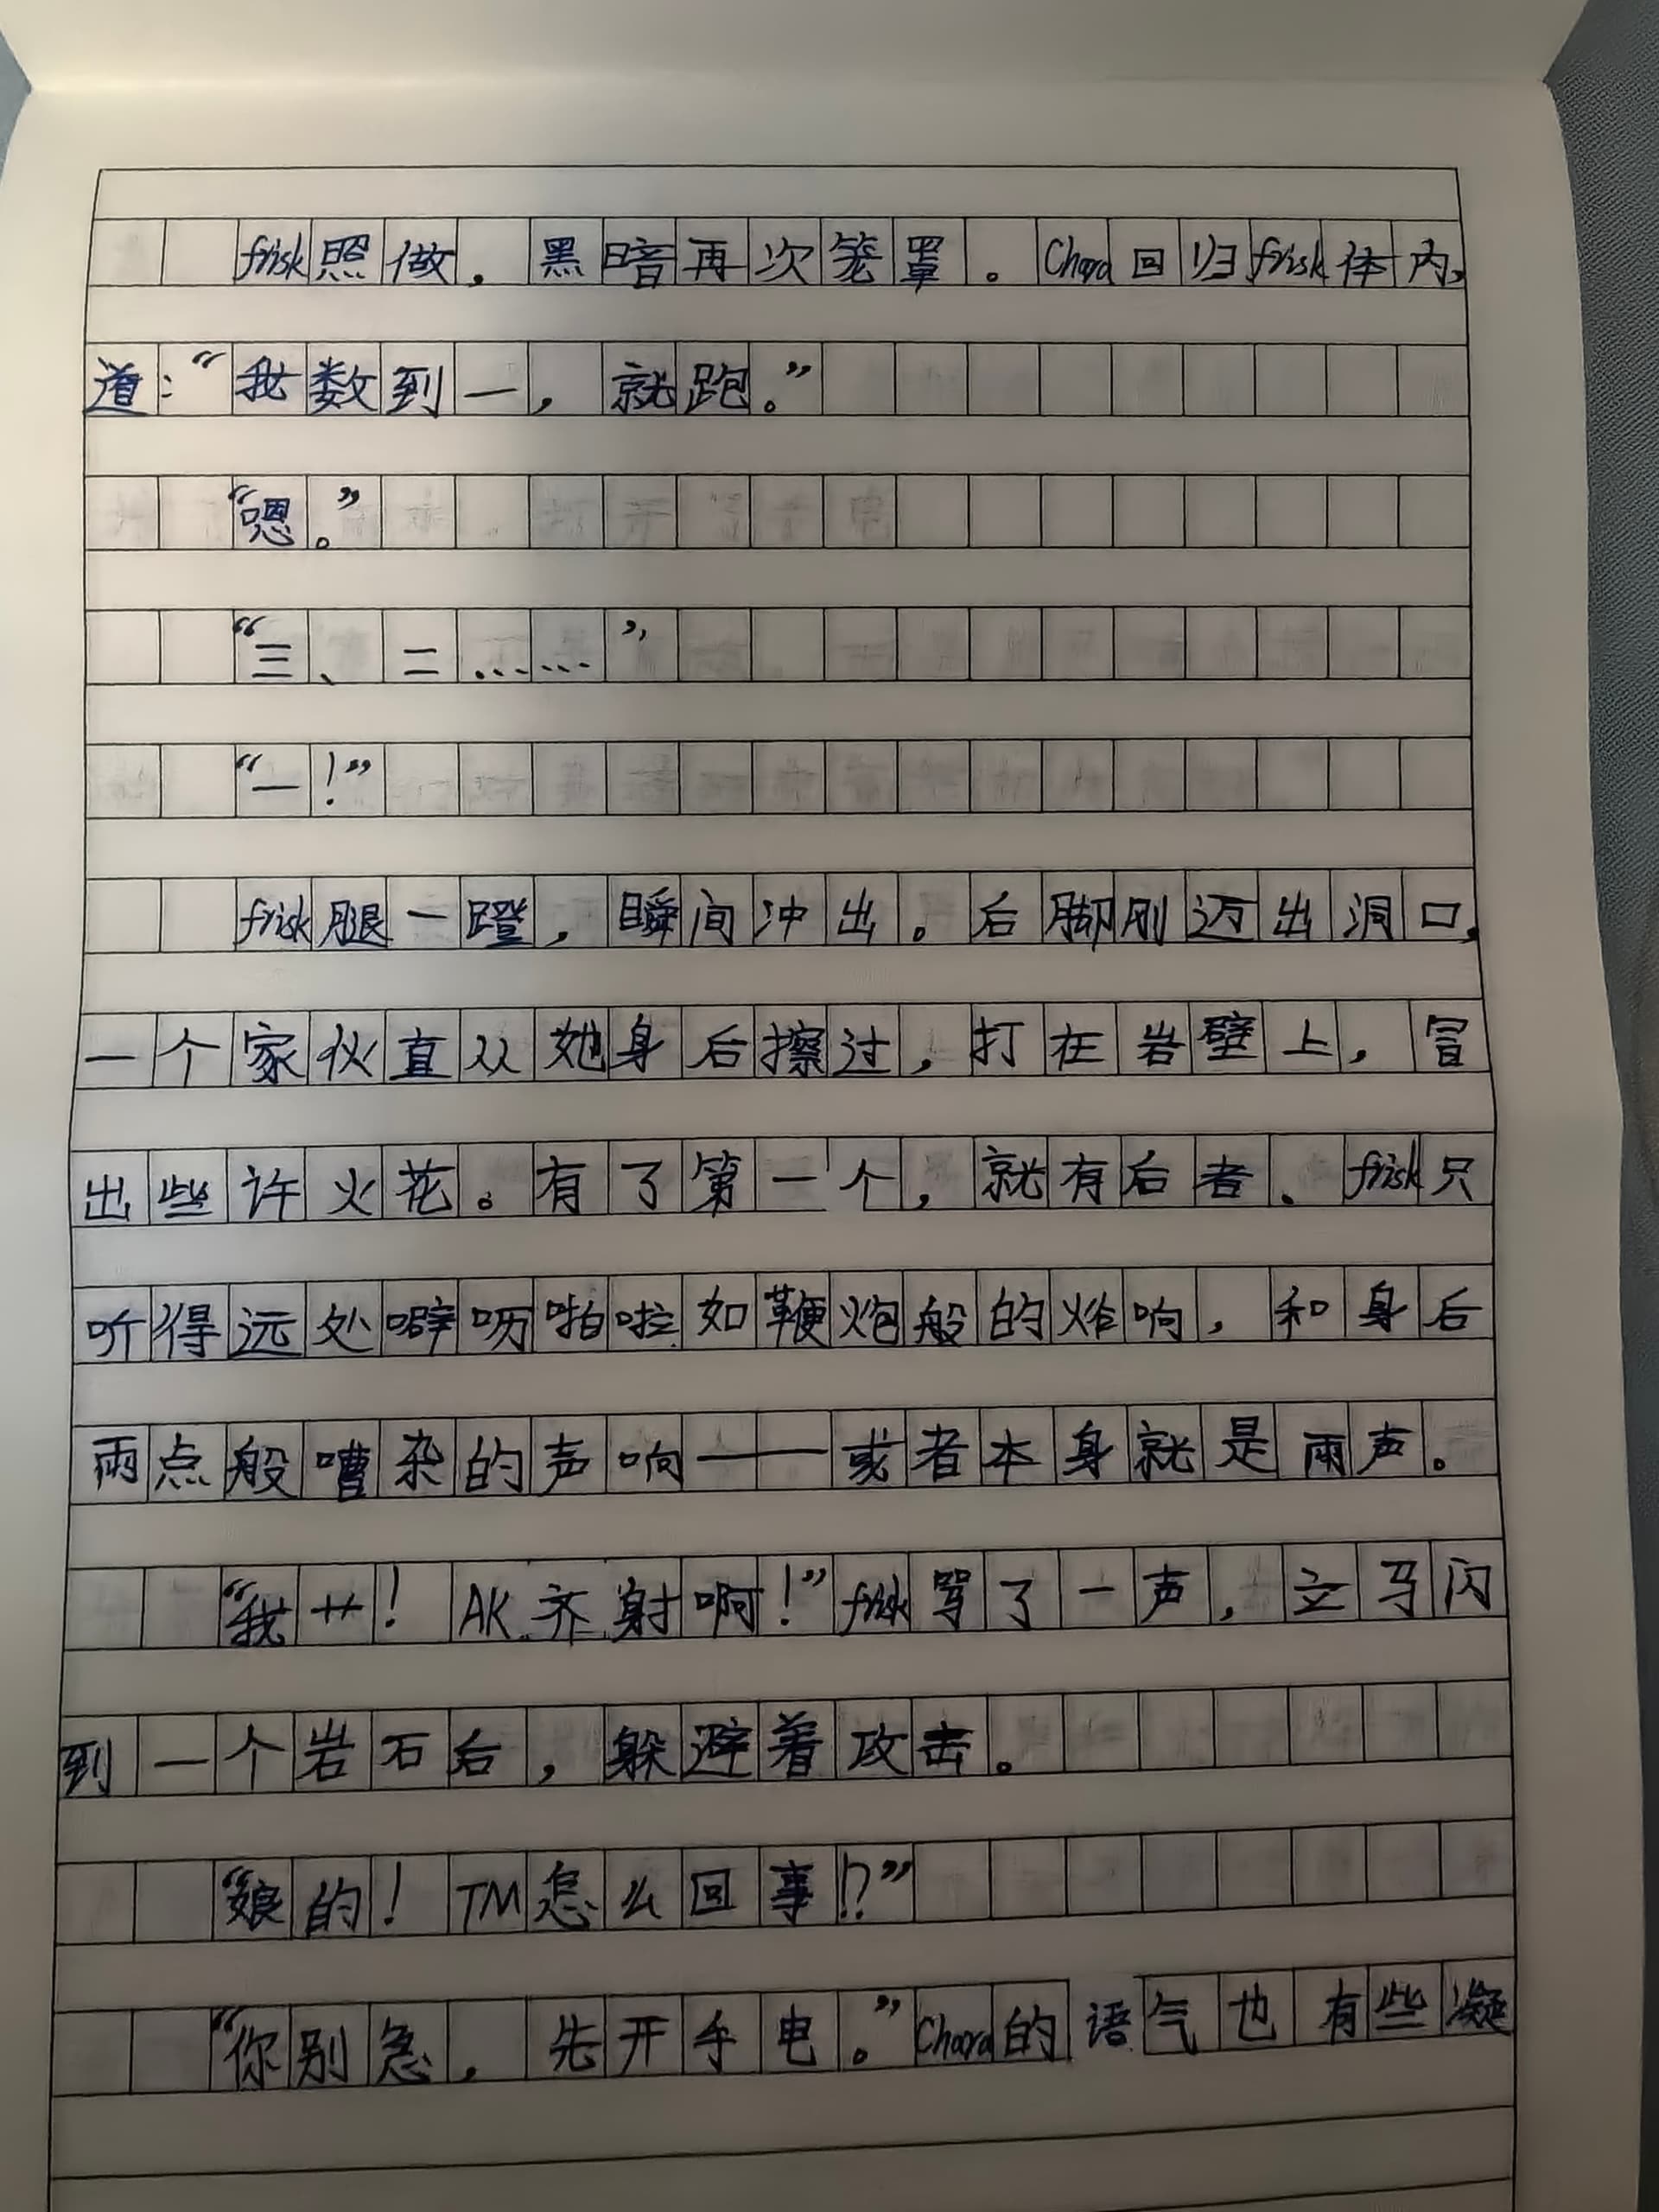 frisk照做，黑暗再次笼罩。Chara回归frisk体内，
道：“我数到一，就跑。”
“嗯。”
“三、二……”
“一！”
frisk腿一蹬，瞬间冲出。后脚刚迈出洞口，
一个家伙直从她身后擦过，打在岩壁上，冒
出些许火花。有了第一个，就有后者、frisk只
听得远处噼呖啪啦如鞭炮般的炸响，和身后
雨点般嘈杂的声响——或者本身就是雨声。
“我艹！AK齐射啊！”frisk骂了一声，立马闪
到一个岩石后，躲避着攻击。
“娘的！TM怎么回事！？”
“你别急，先开手电。”Chara的语气也有些凝